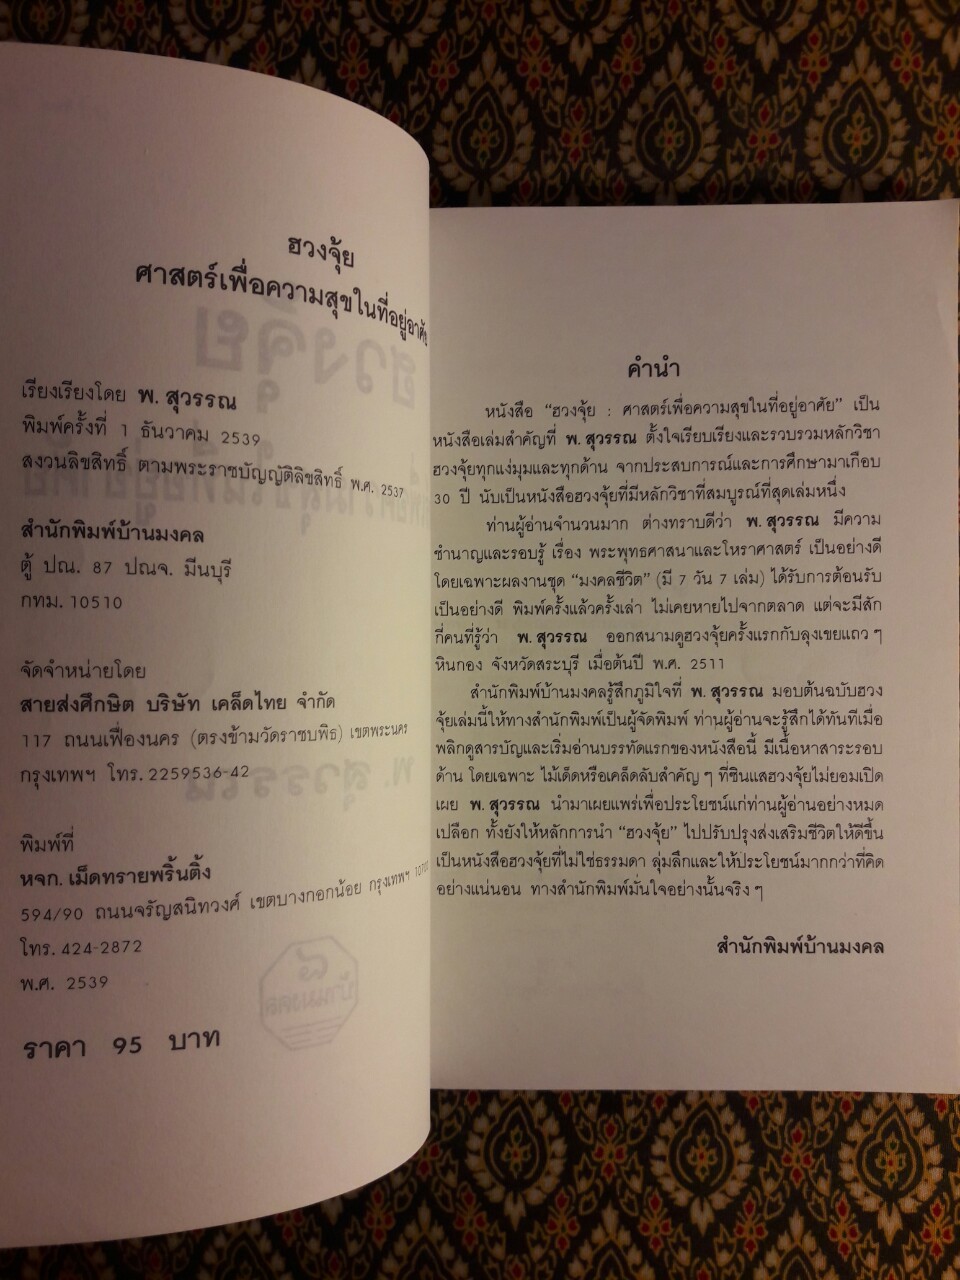 ฮวงจุ้ย
ศาสตร์เพื่อความสุขในที่อยู่อาศัย
เรียงเรียงโดย พ. สุวรรณ
พิมพ์ครั้งที่ 1 ธันวาคม 2539
สงวนลิขสิทธิ์ ตามพระราชบัญญัติลิขสิทธิ์ พ.ศ. 2537
สำนักพิมพ์บ้านมงคล
ตู้ ปณ. 87 ปณจ. มีนบุรี
กทม. 10510
จัดจำหน่ายโดย
สายส่งศึกษิต บริษัท เคล็ดไทย จำกัด
117 ถนนเฟื่องนคร (ตรงข้ามวัดราชบพิธ) เขตพระนคร
กรุงเทพฯ โทร. 2259536-42
พิมพ์ที่
หจก. เม็ดทรายพริ้นติ้ง
594/90 ถนนจรัญสนิทวงศ์ เขตบางกอกน้อย กรุงเทพฯ 10700
โทร. 424-2872
พ.ศ. 2539
ราคา 95 บาท
คำนำ
หนังสือ “ฮวงจุ้ย : ศาสตร์เพื่อความสุขในที่อยู่อาศัย” เป็น
หนังสือเล่มสำคัญที่ พ. สุวรรณ ตั้งใจเรียบเรียงและรวบรวมหลักวิชา
ฮวงจุ้ยทุกแง่มุมและทุกด้าน จากประสบการณ์และการศึกษามาเกือบ
30 ปี นับเป็นหนังสือฮวงจุ้ยที่มีหลักวิชาที่สมบูรณ์ที่สุดเล่มหนึ่ง
ท่านผู้อ่านจำนวนมาก ต่างทราบดีว่า พ. สุวรรณ มีความ
ชำนาญและรอบรู้ เรื่อง พระพุทธศาสนาและโหราศาสตร์ เป็นอย่างดี
โดยเฉพาะผลงานชุด “มงคลชีวิต” (มี 7 วัน 7 เล่ม) ได้รับการต้อนรับ
เป็นอย่างดี พิมพ์ครั้งแล้วครั้งเล่า ไม่เคยหายไปจากตลาด แต่จะมีสัก
กี่คนที่รู้ว่า พ. สุวรรณ ออกสนามดูฮวงจุ้ยครั้งแรกกับลุงเขยแถว ๆ
หินกอง จังหวัดสระบุรี เมื่อต้นปี พ.ศ. 2511
สำนักพิมพ์บ้านมงคลรู้สึกภูมิใจที่ พ. สุวรรณ มอบต้นฉบับฮวง
จุ้ยเล่มนี้ให้ทางสำนักพิมพ์เป็นผู้จัดพิมพ์ ท่านผู้อ่านจะรู้สึกได้ทันทีเมื่อ
พลิกดูสารบัญและเริ่มอ่านบรรทัดแรกของหนังสือนี้ มีเนื้อหาสาระรอบ
ด้าน โดยเฉพาะ ไม้เด็ดหรือเคล็ดลับสำคัญ ๆ ที่ซินแสฮวงจุ้ยไม่ยอมเปิด
เผย พ. สุวรรณ นำมาเผยแพร่เพื่อประโยชน์แก่ท่านผู้อ่านอย่างหมด
เปลือก ทั้งยังให้หลักการนำ “ฮวงจุ้ย” ไปปรับปรุงส่งเสริมชีวิตให้ดีขึ้น
เป็นหนังสือฮวงจุ้ยที่ไม่ใช่ธรรมดา ลุ่มลึกและให้ประโยชน์มากกว่าที่คิด
อย่างแน่นอน ทางสำนักพิมพ์มั่นใจอย่างนั้นจริง ๆ
สำนักพิมพ์บ้านมงคล